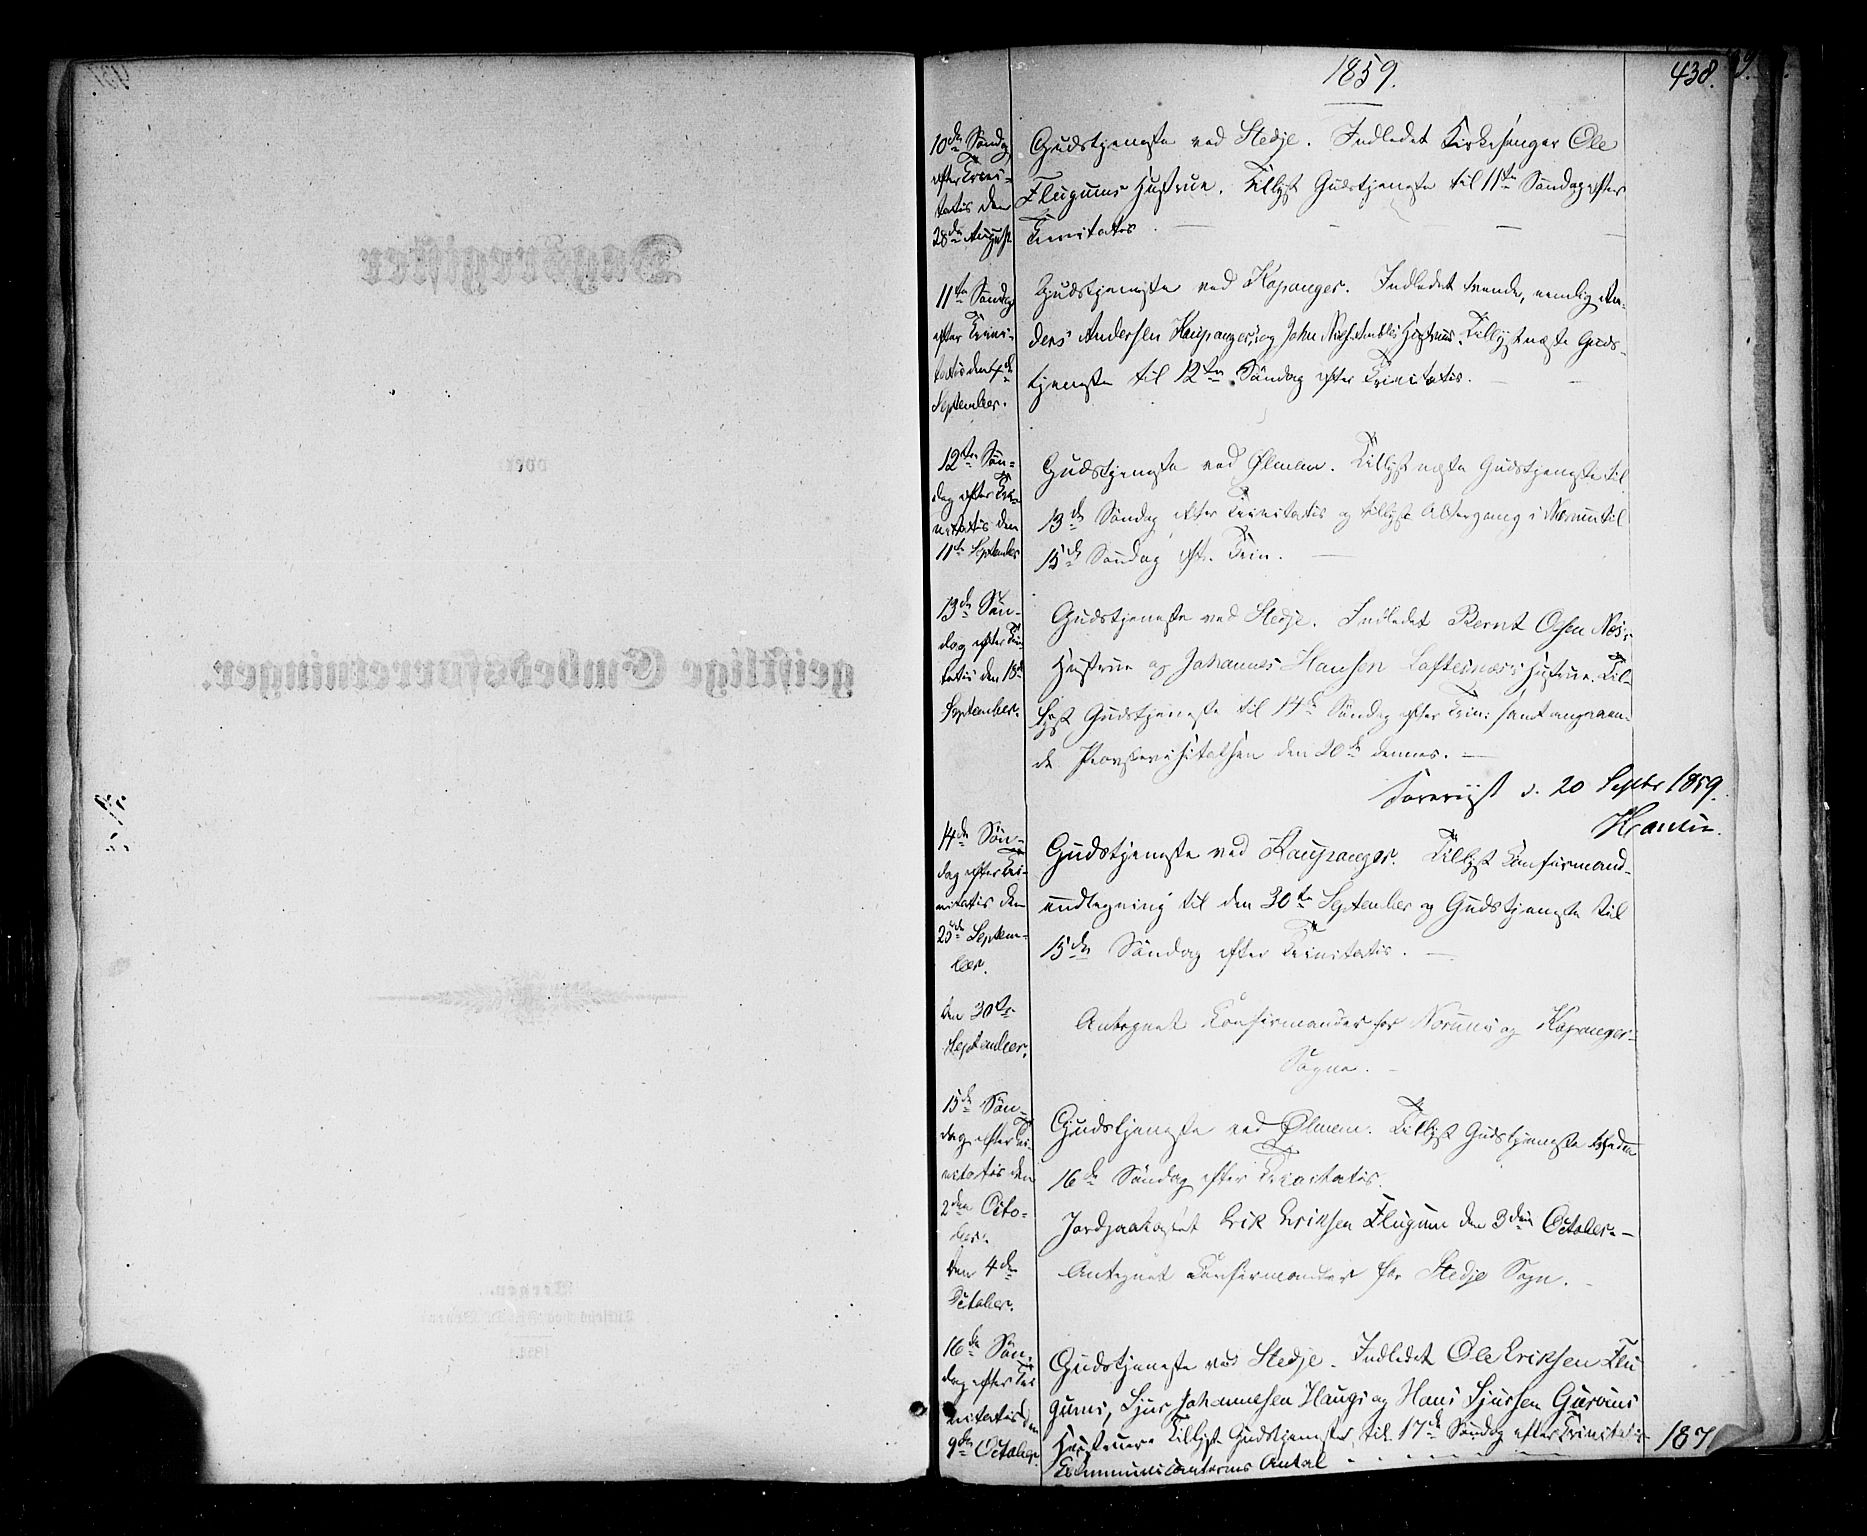 1859.
438.
10de Søndag
efter Trini-
tatis den
28de August
Gudstjeneste ved Stedje. Indledet Kirkesanger Ole
Flugums Hustrue. Tillyst Gudstjeneste til 11te Søndag efter
Trinitatis.
11te Søndag
efter Trini-
tatis den 4de
September.
Gudstjeneste ved Kopanger. Indledet tvende, nemlig An-
ders Andersen Kaupangers og John Niels. Ambles Hustruer. Tillyst næste Guds-
tjeneste til 12te Søndag efter Trinitatis.
12te Søn-
dag efter Tri-
nitatis den
11te September
Gudstjeneste ved Ølmem. Tillyst næste Gudstjeneste til
13de Søndag efter Trinitatis og tillyst Altergang i Norum til
15de Søndag eft. Trin.
13de Søn-
dag efter Trin
tatis den 18de
September.
Gudstjeneste ved Stedje. Indledet Bernt Olsen Næs's
Hustrue og Johannes Hansen Loftesnæs's Hustrue. Til-
lyst Gudstjeneste til 14de Søndag efter Trin: samt angaaen-
de Provstevisitatsen den 20de dennes.
Foreviist d. 20 Septbr 1859.
14de Søn-
dag efter Tri-
nitatis den
25de Septem-
ber.
Gudstjeneste ved Kaupanger. Tillyst Confirmand-
antegning til den 30te September og Gudstjeneste til
15de Søndag efter Trinitatis.
Den 30te
September.
Antegnet Confirmander for Norums og Kopanger-
Sogne.
15de Søn-
dag efter Tri-
nitatis den
2den Octo-
ber.
Gudstjeneste ved Ølmem. Tillyst Gudstjeneste til den
16de Søndag efter Trinitatis.
Jordpaakastet Erik Eriksen Flugum den 3die October.
Den 4de
October.
Antegnet Confirmander for Stedje Sogn.
16de Søn-
dag efter Tri
nitatis den
9de October.
Gudstjeneste ved Stedje. Indledet Ole Eriksen Flu
gums, Sjur Johannesen Haugs og Hans Sjursen Gurvins
Hustruer. Tillyst Gudstjeneste til 17de Søndag efter Trinitatis
Communicanternes Antal
187
Dagsregister
over
geistlige Embedsforretninger.
Bergen.